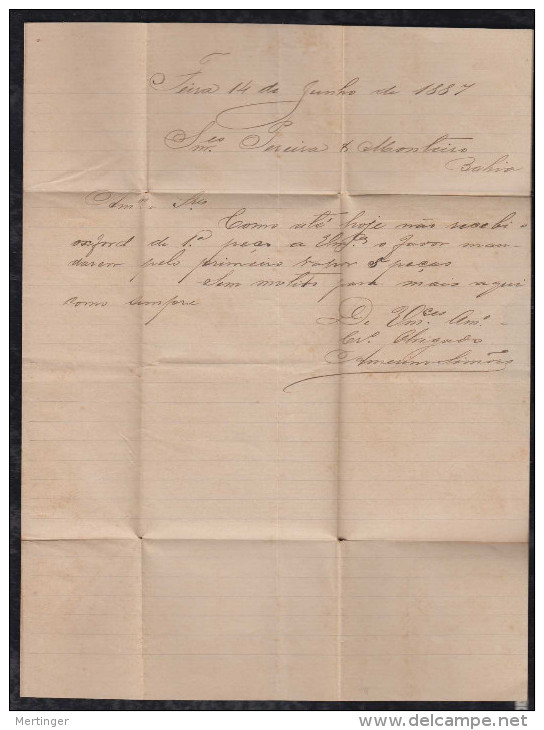 Feira 14 de Junho de 1887
Snrs. Pereira & Monteiro
Bahia
Amos. e Snrs.
Como até hoje não recebi o
oxford de 1.ª peço a Vmces o favor man-
darem pelo primeiro vapor 5 peças
Sem motivo para mais aqui
como sempre
De Vmces Amo.
Cro. Obrigado
Simões
Mertinger
www.delcampe.net